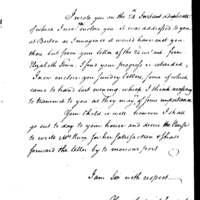 I wrote you on the 24 Instant duplicate
of which I now enclose you it was addressed to you
at Boston as I imagined it would have met you
there but from your letter of the 22 inst and from
Elizabeth Town I find your progress is retarded,
I now enclose you Sundry letters, some of which
came to hand last evening which I think necessary
to transmit to you as they may be of some importance
Your Child is well however I shall
go out to day to your house and desire the Nurse
to write Mrs King for her Satisfaction & shall
forward the letter by to morrows post
I am Sir with respect